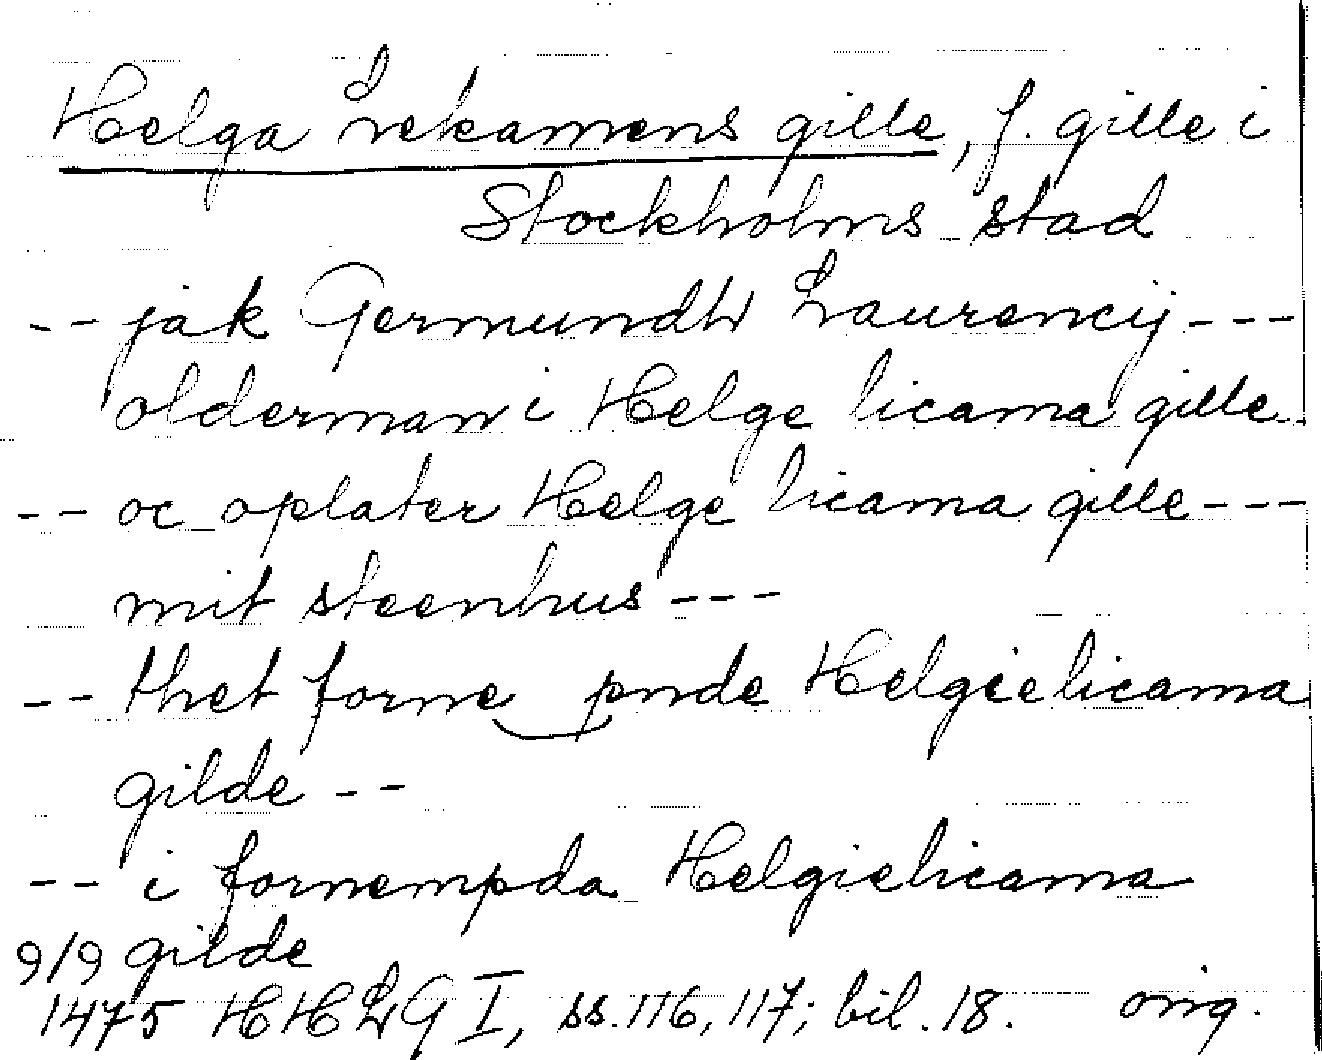 Helga Lekamens gille, f. gille i
Stockholms stad
-- jak Germundh Laurencij ---
olderman i Helge licama gille
-- oc oplater Helge licama gille ---
mit steenhus ---
-- thet forne pnde Helgielicama
gilde --
-- i fornempda Helgielicama
9/9 gilde
1475 HHLG I, ss. 116, 117; bil. 18. orig.